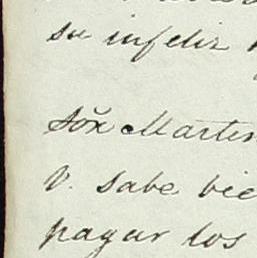 su infeliz
Sõr Martin
V. sabe bie
pagar los